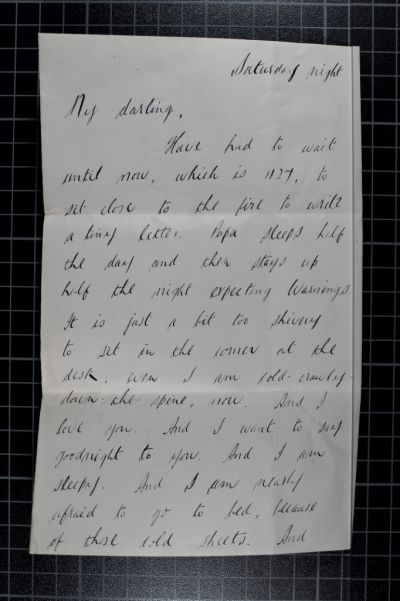 Saturday night
My darling,
Have had to wait
until now, which is 11.27, to
sit close to the fire to write
a tiny letter. Papa sleeps half
the day and then stays up
half the night expecting Warnings.
It is just a bit too shivery
to sit in the corner at the
desk; even I am cold-crawly-
down-the-spine, now. And I
love you. And I want to say
goodnight to you. And I am
sleepy. And I am nearly
afraid to go to bed, because
of those cold sheets. And